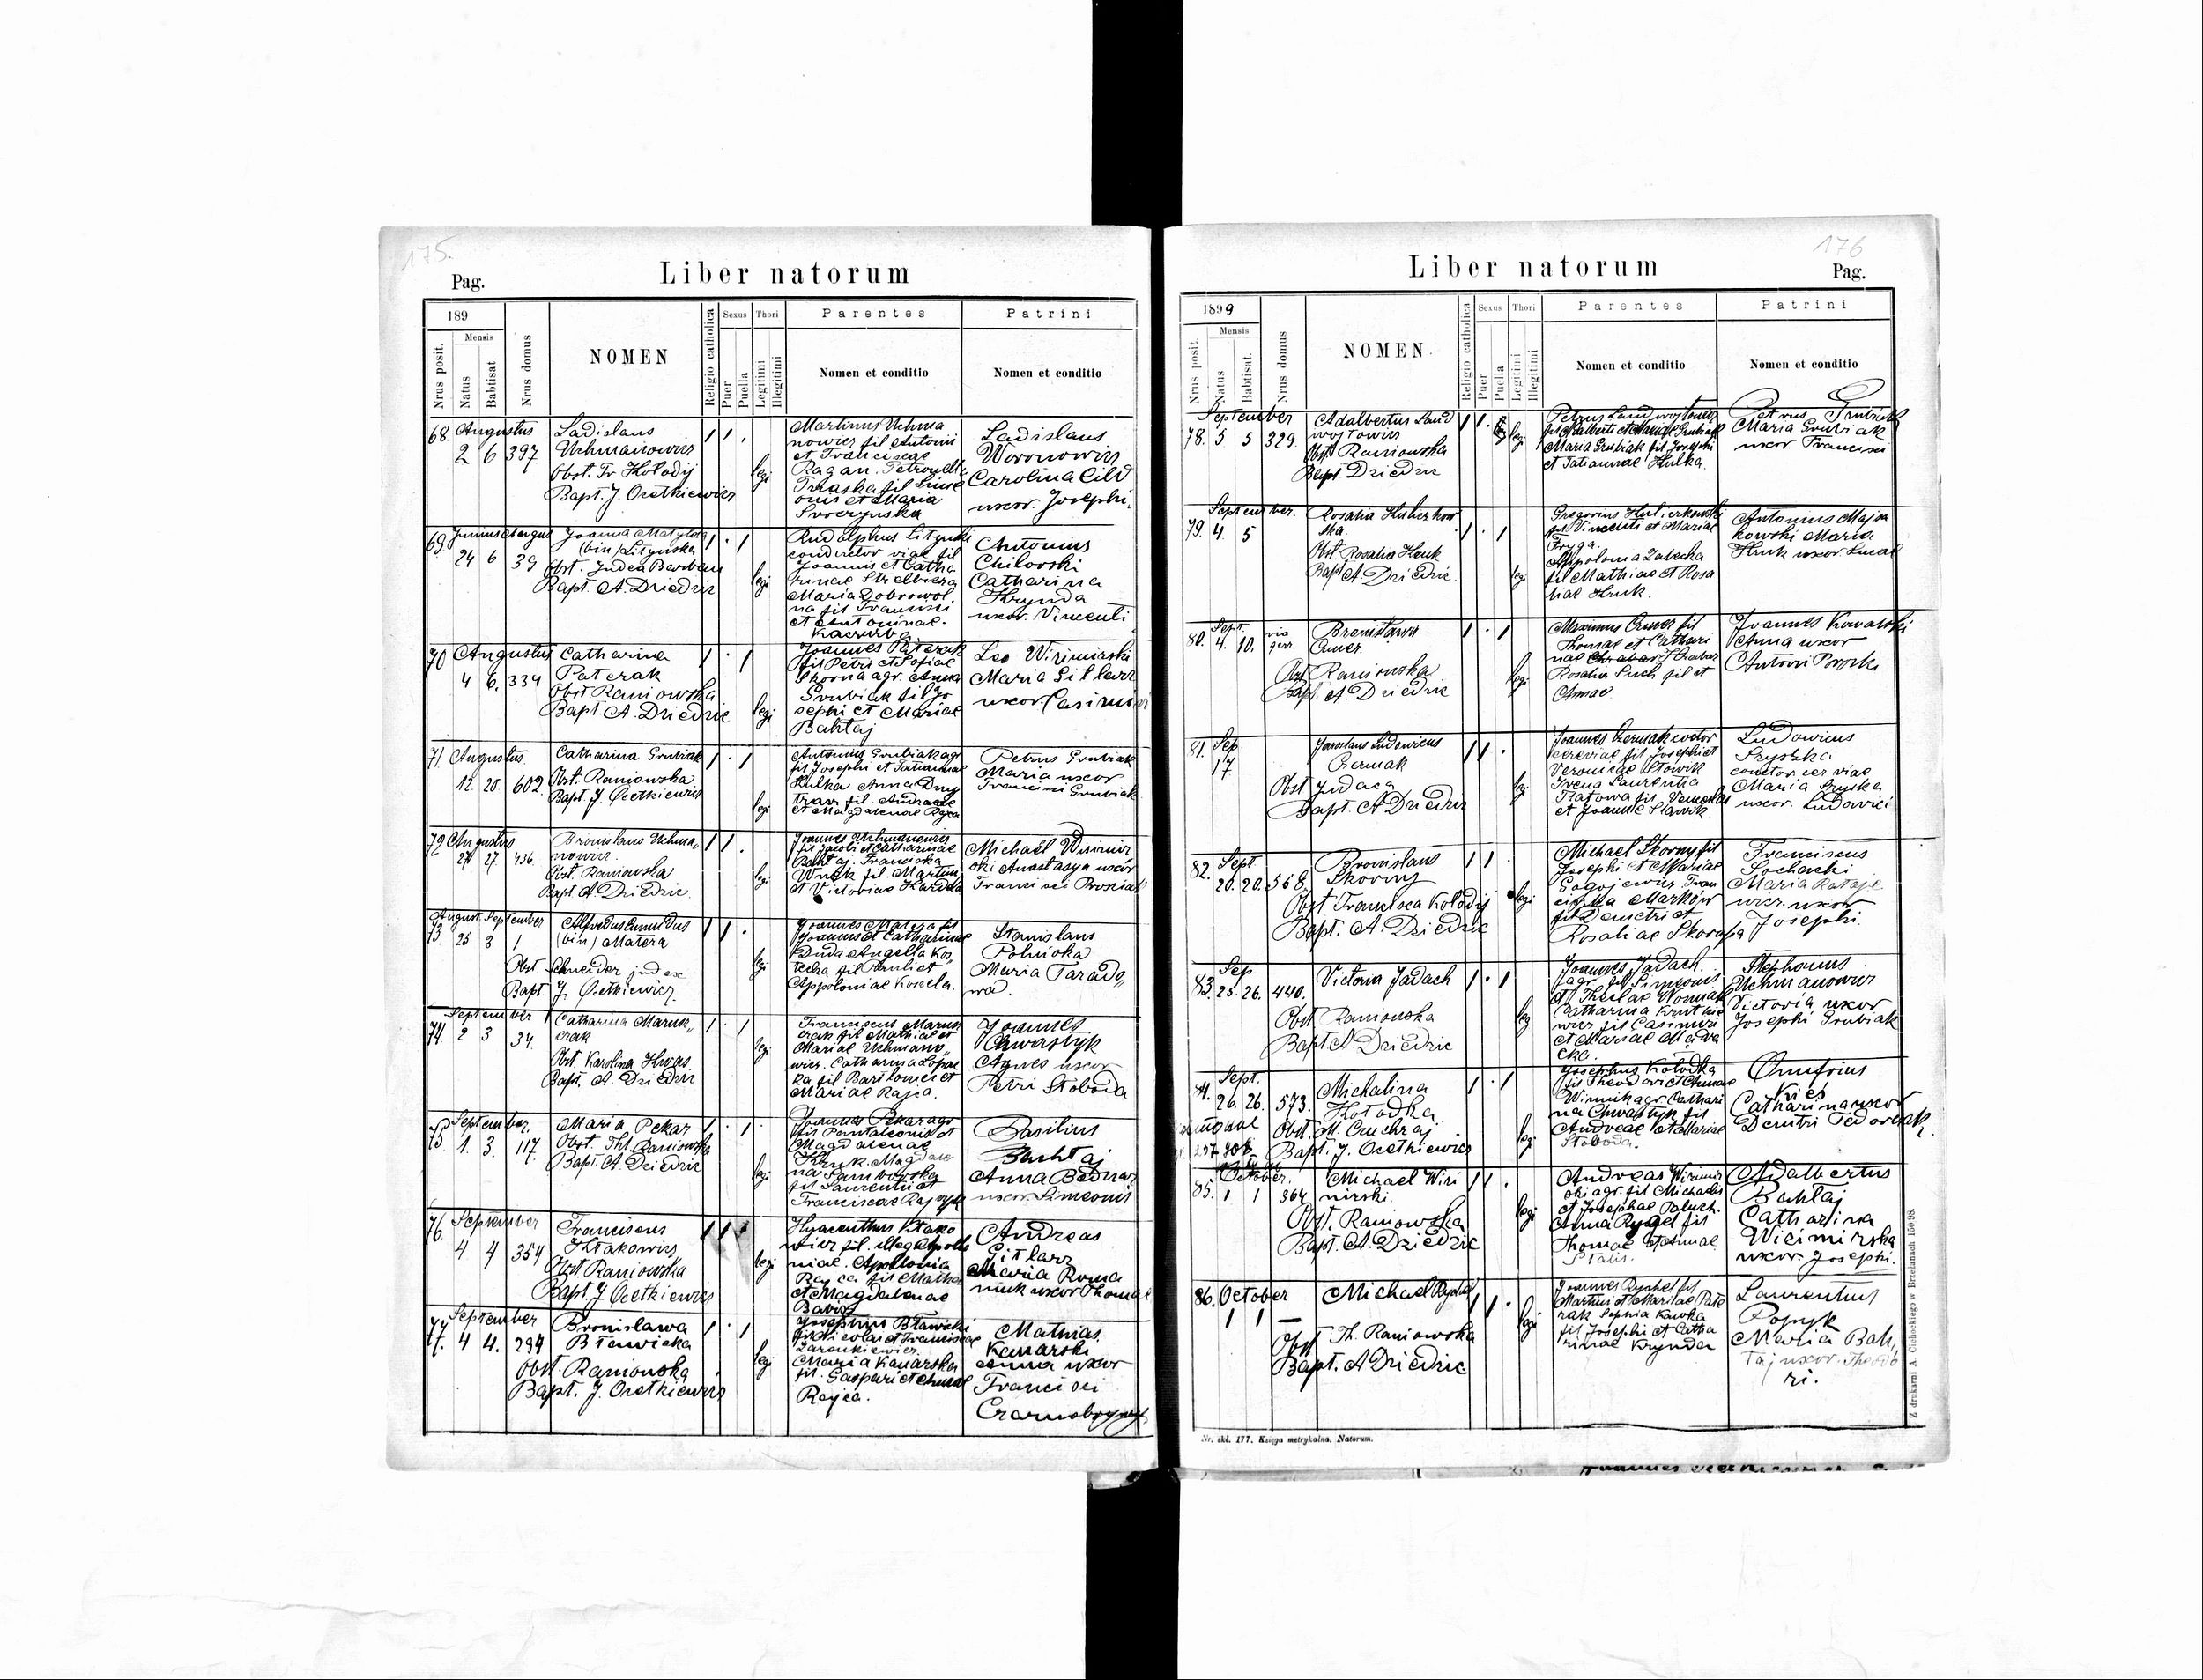 175.
Liber natorum
Pag.
189
Nrus posit.
Mensis
Natus
Babtisat.
Nrus domus
NOMEN
Religio catholica
Sexus
Puer
Puella
Thori
Legitimi
Illegitimi
Parentes
Nomen et conditio
Patrini
Nomen et conditio
68. Augustus
2 6 397
Ladislaus
Uchmanowicz
Obst. Fr. Kolodij
Bapt. J. Ocetkiewicz
legi
Martinus Uchma
nowicz fil Antonii
et Franciscae
Ragan. Petronella
Trzaska fil Sime
onis et Maria
Ladislaus
Woronowicz
Carolina Cild
uxor. Josephi.
69. Junius Augus
24 6 39
Joanna Matylda
(bin) Litynska
Obst. Judea Barbara
Bapt. A. Dziedzic
legi
Rudolphus Litynski
conductor viae fil
Joannis et Catha
rinae Strelbicza
Maria Dobrowol
na fil Francisci
et Antoninae.
Kaczurba
Antonius
Chilovski
Catharina
Krynda
uxor. Vincenti
70 Augustus
4 6. 334
Catharina
Paterak
Obst Raniowska
Bapt. A. Dziedzic
legi
Joannes Paterak
fil Petri et Sofiae
Skorna agr. Anna
Grubiak fil Jo
sephi et Mariae
Bahtaj
Leo Wizimirski
Maria Gitlarz
uxor Casimiri
71 Augustus.
12. 20. 602.
Catharina Grubiak
Obst. Raniowska
Bapt. J. Ocetkiewicz
legi
Antonius Grubiak agr
fil Josephi et Tatiannae
Hulka Anna Dmy
trasz fil. Andreae
et Magdalenae Rajca
Petrus Grubiak
Maria uxor
Francisci Grubiak
72 Augustus
27 27. 436.
Bronislaus Uchma,,
nowicz.
Obst. Raniowska
Bapt A. Dziedzic.
legi
Joannes Uchmanowicz
fil Jacobi et Catharinae
Bahtaj. Franciska
Wnek fil. Martini
et Victoriae Harada
Michaël Wizimir
ski Anastasya uxor
Francisci Prosniak
August September
73 25 3 1
Alfredus Edmundus
(bin) Matera
Obst Schneider judex
Bapt J. Ocetkiewicz.
legi
Joannes Matera fil
Joannis et Catharinae
Duda Angella Kos,
tecka fil Pauli et
Appoloniae Koszela.
Stanislaus
Polnicka
Maria Tarado,,
wa.
September
74. 2 3 34.
Catharina Marusz,,
czak
Obst. Karolina Kwas
Bapt. A. Dziedzic
legi
Franciscus Marusz
czak fil Mathiae et
Mariae Uchmano,,
wicz. Catharina Lopac
ka fil Bartlomei et
Mariae Rajca.
Joannes
Chwastyk
Agnes uxor
Petri Sloboda
75 September.
1. 3. 117.
Maria Pekar
Obst Thl. Raniowska
Bapt. A. Dziedzic
legi
Joannes Pekar agr
fil Pantaleonis et
Magdalenae
Kruk. Magdale
na Samborska
fil Laurentii et
Franciscae
Basilius
Bachtaj
Anna Bednarz
uxor. Simeonis
76. September
4 4 354
Franciscus
Ktakowicz
Obst. Raniowska
Bapt. J Ocetkiewicz
legi
Hyacenthus Ktako
wicz fil. illeg Apollo
niae. Apollonia
Rajca fil Mathia
et Magdalenae
Babicz
Andreas
Gitlarz
Maria Roma
niuk uxor Thomae
77. September
4 4. 294
Bronislawa
Btawicka
Obst. Raniowska
Bapt. J. Ocetkiewicz
legi
Josephus Btawicki
fil Nicolai et Franciscae
Zarenkiewicz.
Maria Kanarska
fil. Gaspari et Annae
Rajca.
Mathias.
Kanarski
Anna uxor
Francisci
176
Liber natorum
Pag.
1899
Nrus posit.
Mensis
Natus
Babtisat.
Nrus domus
NOMEN.
Religio catholica
Sexus
Puer
Puella
Thori
Legitimi
Illegitimi
Parentes
Nomen et conditio
Patrini
Nomen et conditio
September
78. 5 5 329.
Adalbertus Land
wojtowicz
Obst Raniowska
Bapt Dziedzic
legi
Petrus Landwojtowicz
fil Adalberti et Mariae Grubiak
Maria Grubiak fil Josephi
et Tatiannae Hulka.
Petrus Grubiak
Maria Grubiak
uxor Francisci
September.
79. 4. 5
Rosalia Huberkow
ska.
Obst. Rosalia Hruk
Bapt A. Dziedzic.
legi
Gregorius Huberkowski
fil Vincenti et Mariae
Fryga.
Appolonia Zalecka
fil Mathiae et Rosa
liae Hruk.
Antonius Maja
kowski Maria
Hruk uxor Lucae
80. Sept.
4. 10.
Bronislawa
Cwer.
Obst Raniowska
Bapt. A. Dziedzic
legi
Maximus Cwer fil
Thomae et Cathari
nae Hrabar
Rosalia Such fil et
Annae
Joannes Kowalski
Anna uxor
Antoni
81. Sep
17
Jaroslaus Ludovicus
Bermak
Obst Judaea
Bapt. A Dziedzic
legi
fil Josephi et
Veronicae Slowik
Irena Laurentia
et Joannae Slawik
Ludovicus
Pryszka
viae
Maria Pryska
uxor. Ludovici
82. Sept
20. 20. 568.
Bronislaus
Skorny
Obst Francisca Kolodij
Bapt. A. Dziedzic
legi
Michael Skorny fil
Josephi et Mariae
Gogojewicz Fran
ciszka Markow
fil Demetri et
Rosaliae Skorapa
Franciscus
Sochacki
Maria Rataje
wicz. uxor
Josephi.
Sep
83. 25. 26. 440.
Victoria Jadach
Obst Raniowska
Bapt A. Dziedzic
leg
Joannes Jadach.
agr fil Simeonis
et Theclae Womiak
Catharina Krutkie
wicz fil Casimiri
et Mariae
cka.
Stephanus
Uchmanowicz
Victoria uxor
Josephi Grubiak
Sept.
84. 26. 26. 573.
Michalina
Kolodka
Obst. M. Czuchraj
Bapt. J. Ocetkiewicz
legi
Josephus Kolodka
fil Theodori et Annae
Winnik agr. Cathari
na Chwastyk fil
Andreae et Mariae
Sloboda.
Onufrius
Kiés
Catharina uxor
Demtri Fedorczak.
October.
85. 1 1 364
Michael Wizi
mirski.
Obst. Raniowska
Bapt. A. Dziedzic
legi
Andreas Wizimir
ski agr. fil Michaelis
et Josephae Paluch.
Anna Rygel fil
Thomae et Annae
Adalbertus
Bahtaj
Catharina
Wizimirska
uxor. Josephi.
86. October
1 1 —
Michael Rychel
Obst Th. Raniowska
Bapt. A Dziedzic
legi
Joannes Rychel fil
Martini et Mariae Pate
rak Sophia Kawka
fil Josephi et Catha
rinae Krynda
Laurentius
Popyk
Maria Bah,,
taj uxor. Theodo
ri.
Nr. skl. 177. Księga metrykalna. Natorum.
Z drukarni A. Cichockiego w Brzeżanach 150 98.